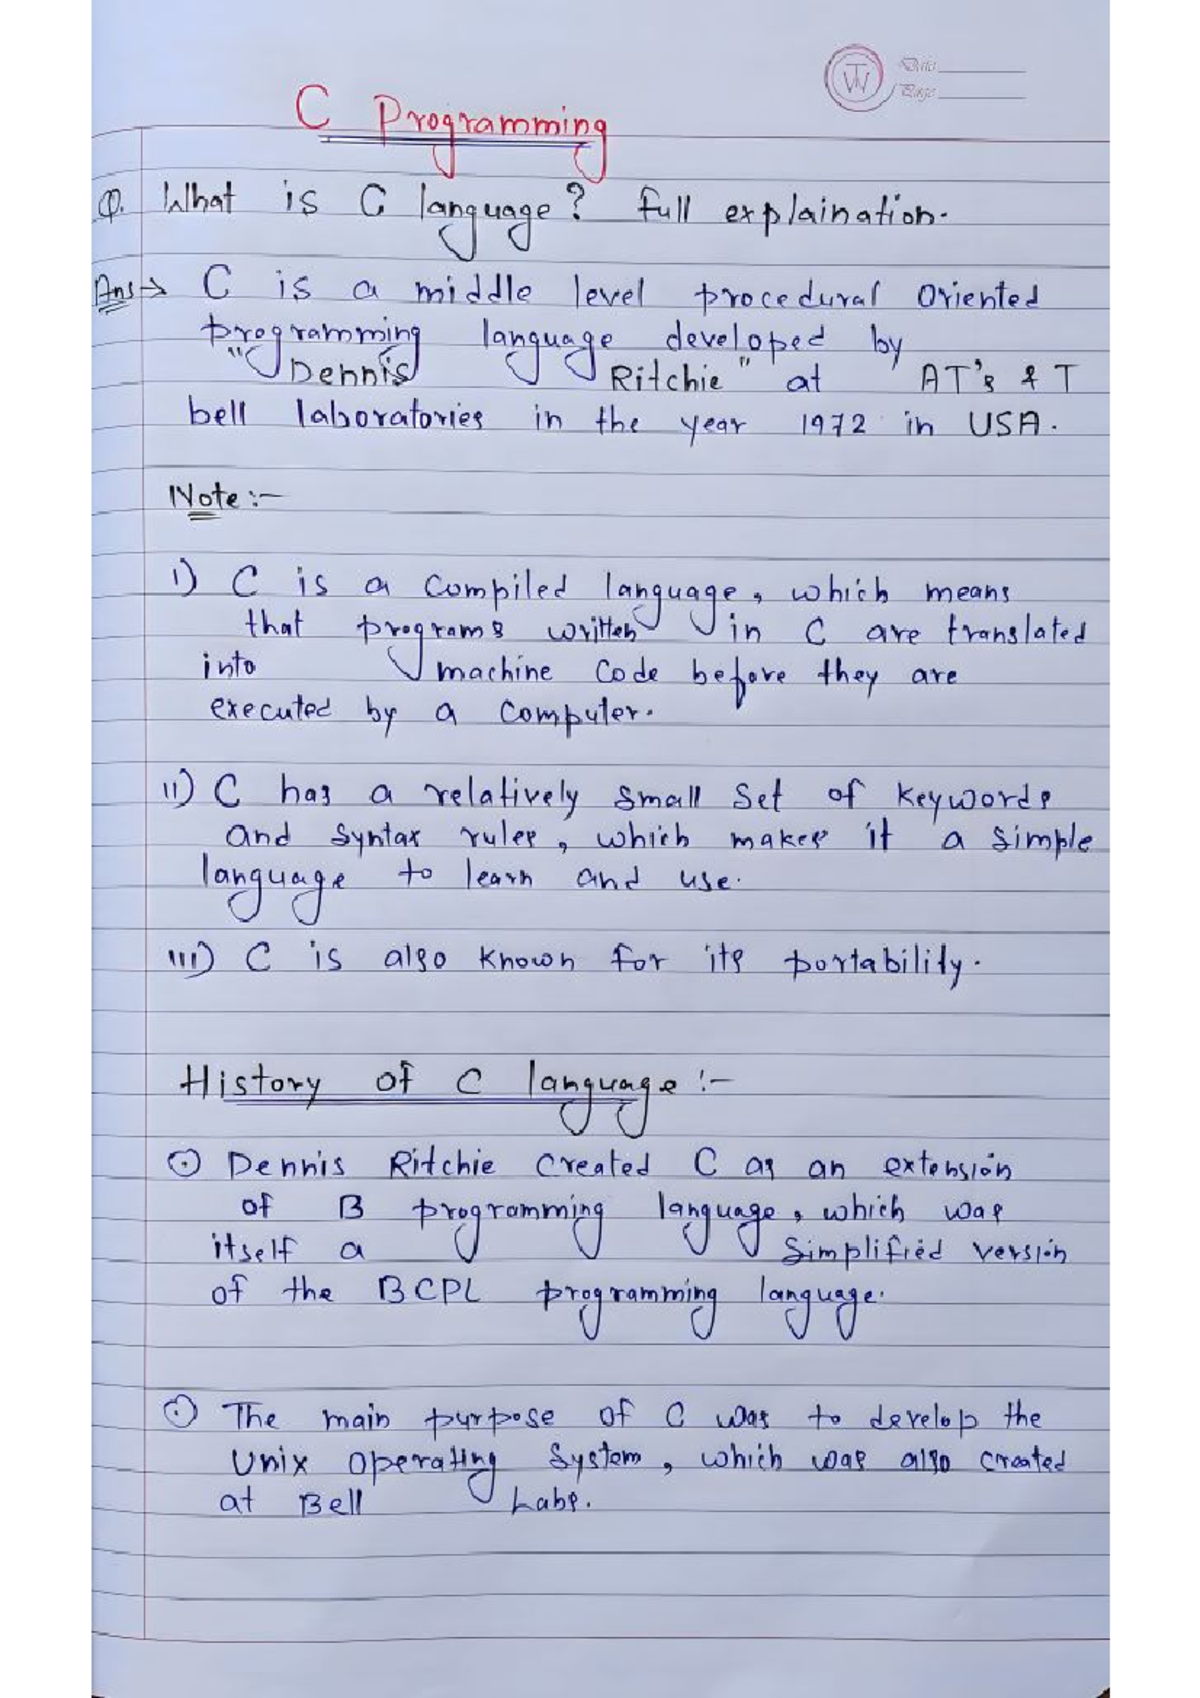 TW
Date
Page
C Programming
Q. What is C language? full explaination.
Ans→ C is a middle level procedural Oriented
programming language developed by
"Dennis Ritchie" at AT's & T
bell laboratories in the year 1972 in USA.
Note:-
i) C is a compiled language, which means
that programs written in C are translated
into machine code before they are
executed by a computer.
ii) C has a relatively small set of keywords
and syntax rules, which makes it a simple
language to learn and use.
iii) C is also known for its portability.
History of C language:-
⊙ Dennis Ritchie created C as an extension
of B programming language, which was
itself a simplified version
of the BCPL programming language.
⊙ The main purpose of C was to develop the
Unix operating system, which was also created
at Bell Labs.